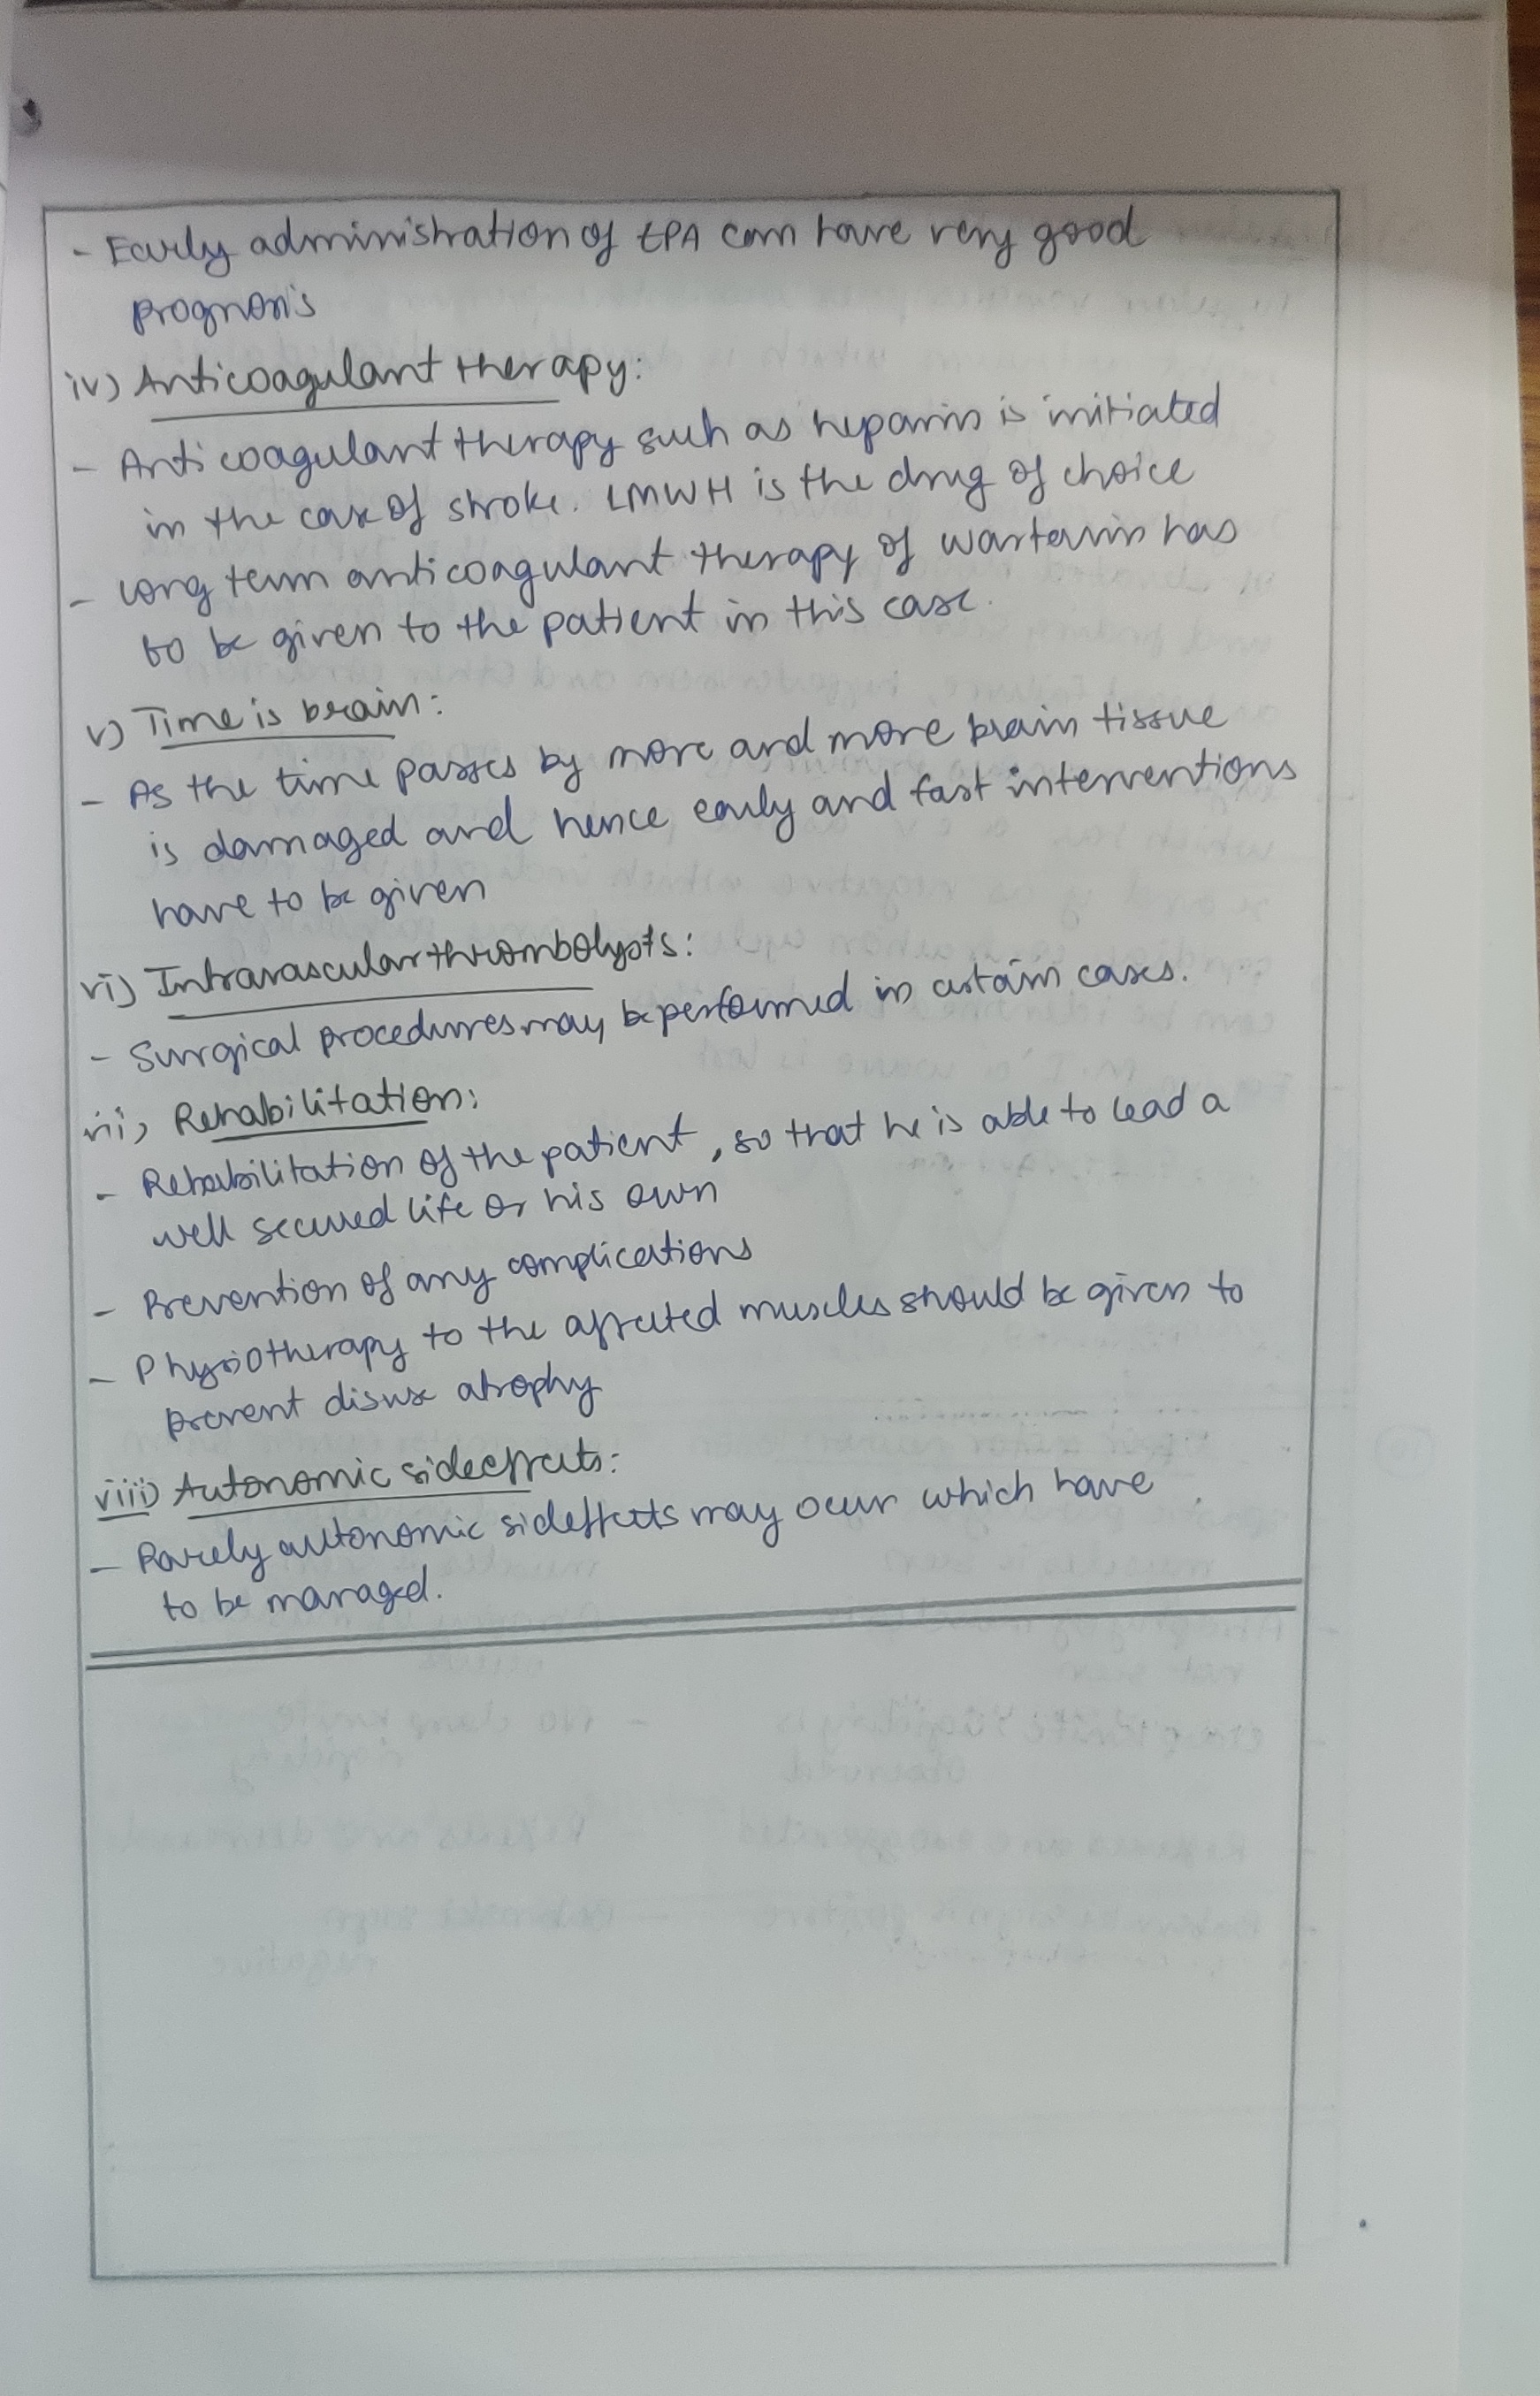 - Early administration of tPA can have very good
prognosis
iv) Anticoagulant therapy:
- Anticoagulant therapy such as heparin is initiated
in the case of stroke. LMWH is the drug of choice
- Long term anticoagulant therapy of warfarin has
to be given to the patient in this case.
v) Time is brain:
- As the time passes by more and more brain tissue
is damaged and hence early and fast interventions
have to be given
vi) Intravascular thrombolysis:
- Surgical procedures may be performed in certain cases.
vii) Rehabilitation:
- Rehabilitation of the patient, so that he is able to lead a
well secured life or his own
- Prevention of any complications
- Physiotherapy to the affected muscles should be given to
prevent disuse atrophy
viii) Autonomic sideeffects:
- Rarely autonomic sideffects may occur which have
to be managed.